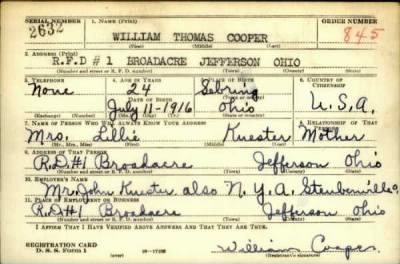 SERIAL NUMBER 1. NAME (Print) ORDER NUMBER
2632 WILLIAM THOMAS COOPER 845
(First) (Middle) (Last)
2. ADDRESS (Print)
R.F.D #1 BROADACRE JEFFERSON OHIO
(Number and street or R. F. D. number) (Town) (County) (State)
3. TELEPHONE 4. AGE IN YEARS 5. PLACE OF BIRTH 6. COUNTRY OF CITIZENSHIP
None 24 Sebring
DATE OF BIRTH (Town or county)
July 11-1916 Ohio U.S.A.
7. NAME OF PERSON WHO WILL ALWAYS KNOW YOUR ADDRESS 8. RELATIONSHIP OF THAT PERSON
Mrs. Lillie Kuester Mother
(Mr., Mrs., Miss) (First) (Middle) (Last)
9. ADDRESS OF THAT PERSON
R.D#1 Broadacre Jefferson Ohio
(Number and street or R. F. D. number) (Town) (County) (State)
10. EMPLOYER'S NAME
Mr. John Kuester also N.Y.A. Steubenville
11. PLACE OF EMPLOYMENT OR BUSINESS
R.D#1 Broadacre Jefferson Ohio
(Number and street or R. F. D. number) (Town) (County) (State)
I AFFIRM THAT I HAVE VERIFIED ABOVE ANSWERS AND THAT THEY ARE TRUE.
REGISTRATION CARD
D. S. S. Form 1 William Cooper
(Registrant's signature)